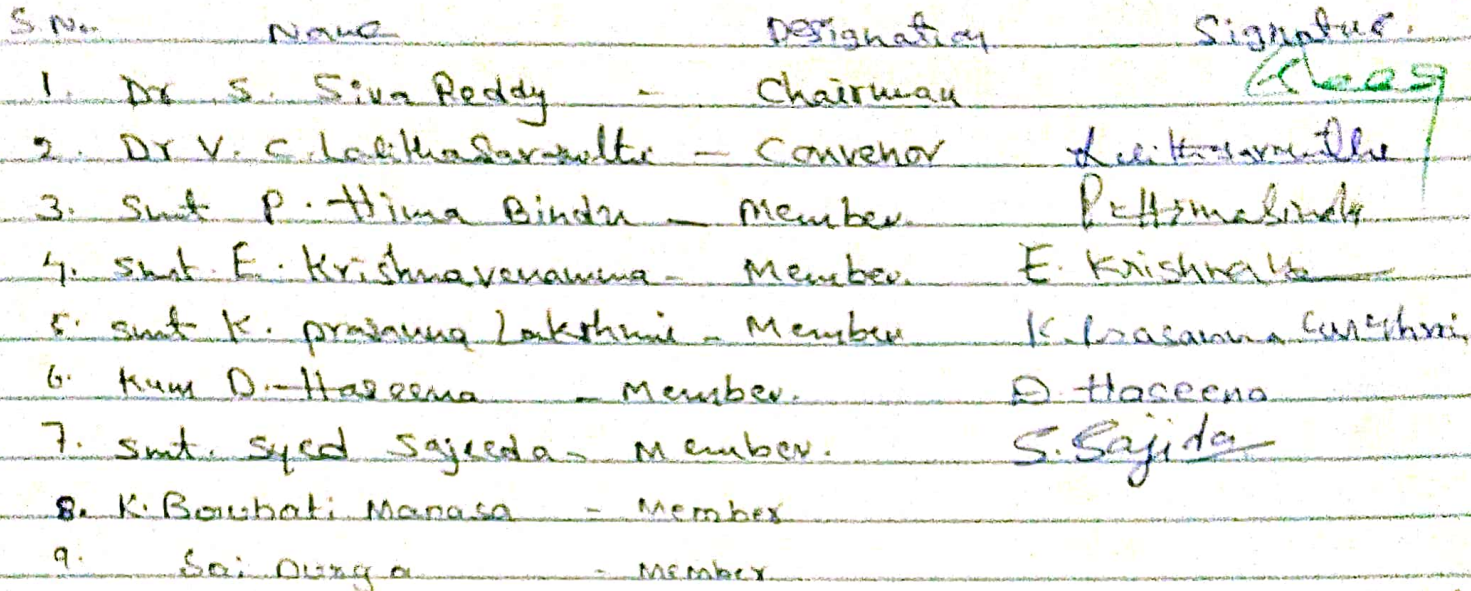 S.No. Name Designation Signature.
1. Dr S. Siva Reddy - Chairman
2. Dr V. C. Lalithasarasulthi - Convenor
3. Smt P. Hima Bindu - Member. P. Himabindu
4. Smt. E. Krishnavenamma - Member. E. Krishna
5. Smt K. prasanna Lakshmi - Member K. Prasanna Lakshmi
6. Kum D. Haseena - Member. D. Haseena
7. Smt. Syed Sajeeda - Member. S. Sajida
8. K. Manasa - Member
9. Sai Durga - Member